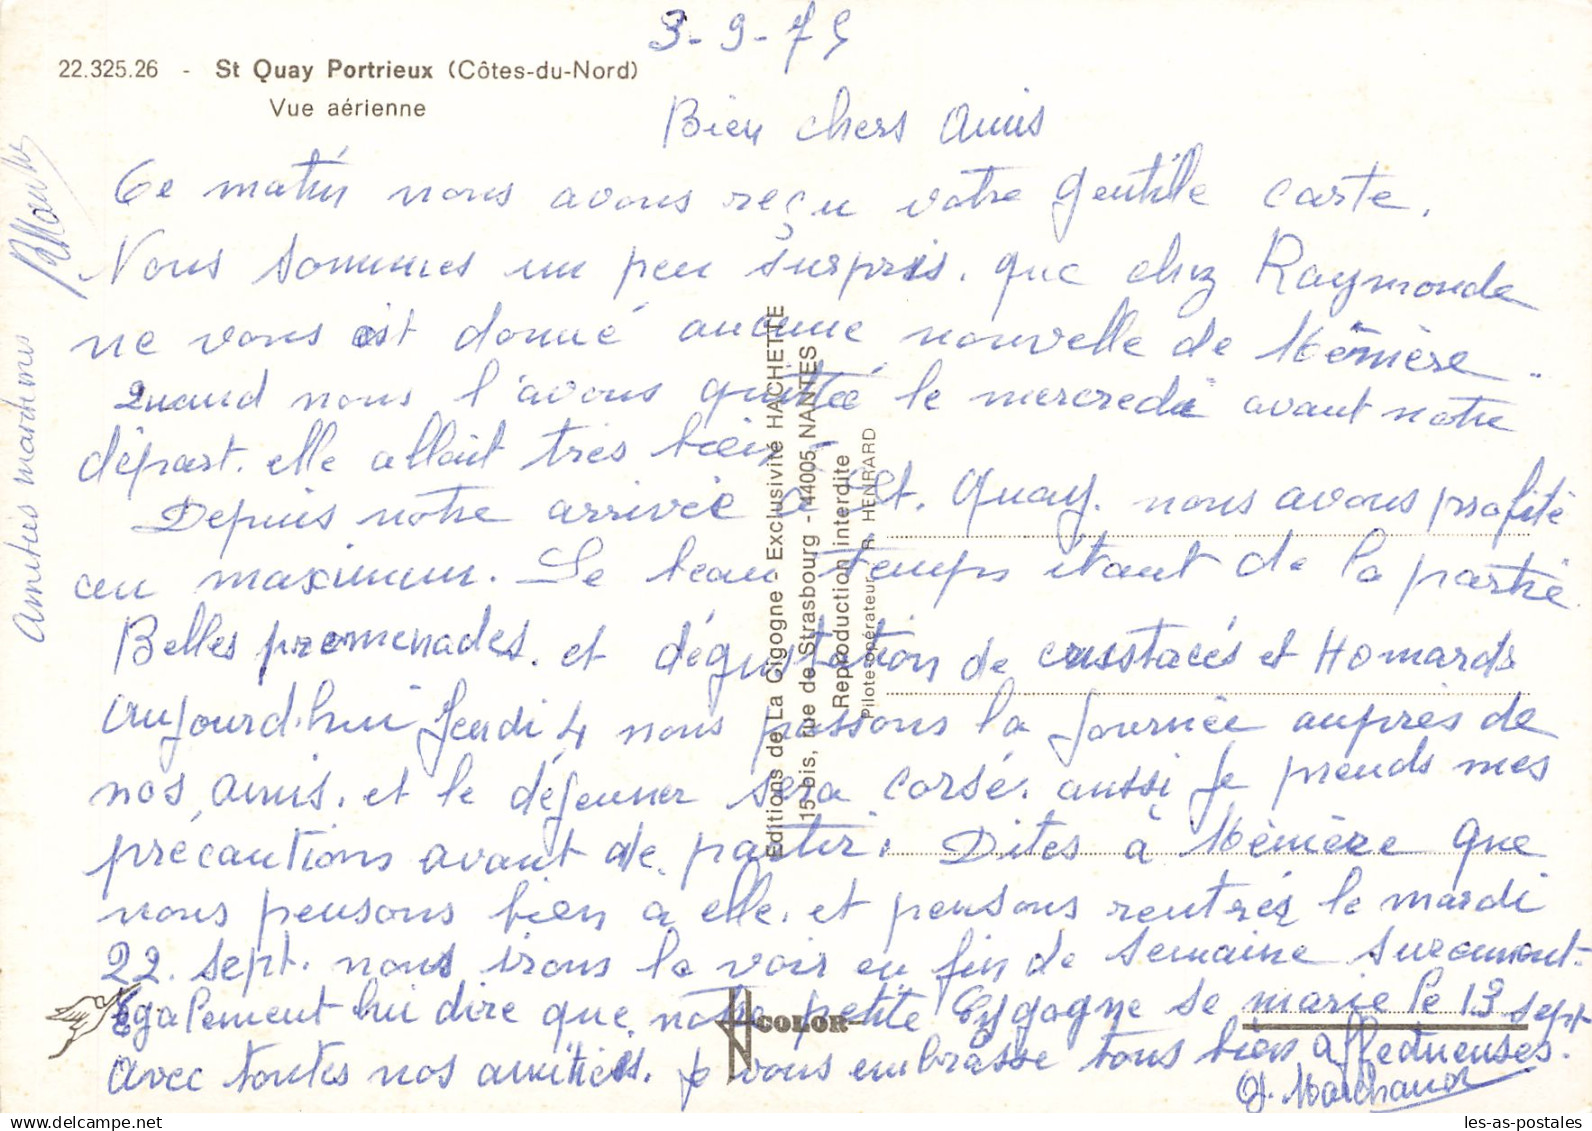 3-9-75
22.325.26 - St Quay Portrieux (Côtes-du-Nord)
Vue aérienne
Bien chers Amis
Ce matin nous avons reçu votre gentille carte.
Nous sommes un peu surpris. que chez Raymonde
ne vous ait donné aucune nouvelle de Mémère.
Quand nous l'avons quittée le mercredi avant notre
départ. elle allait très bien.
Depuis notre arrivée à St. Quay. nous avons profité
au maximum. Le beau temps étant de la partie.
Belles promenades. et dégustation de crustacés et Homards
Aujourd'hui Jeudi 4 nous passons la journée auprès de
nos amis. et le déjeuner sera corsé. aussi je prends mes
précautions avant de partir. Dites à Mémère que
nous pensons bien à elle. et pensons rentrer le mardi
22. sept. nous irons la voir en fin de semaine surement.
Egalement lui dire que notre petite se marie le 13 sept
avec toutes nos amitiés. je vous embrasse tous bien affectueuses.
Marchand
Amitiés
Editions de La Cigogne - Exclusivité HACHETTE
15 bis, rue de Strasbourg - 44005 NANTES
Reproduction interdite
Pilote-opérateur R. HENRARD
COLOR
les-as-postales.com
les-as-postales